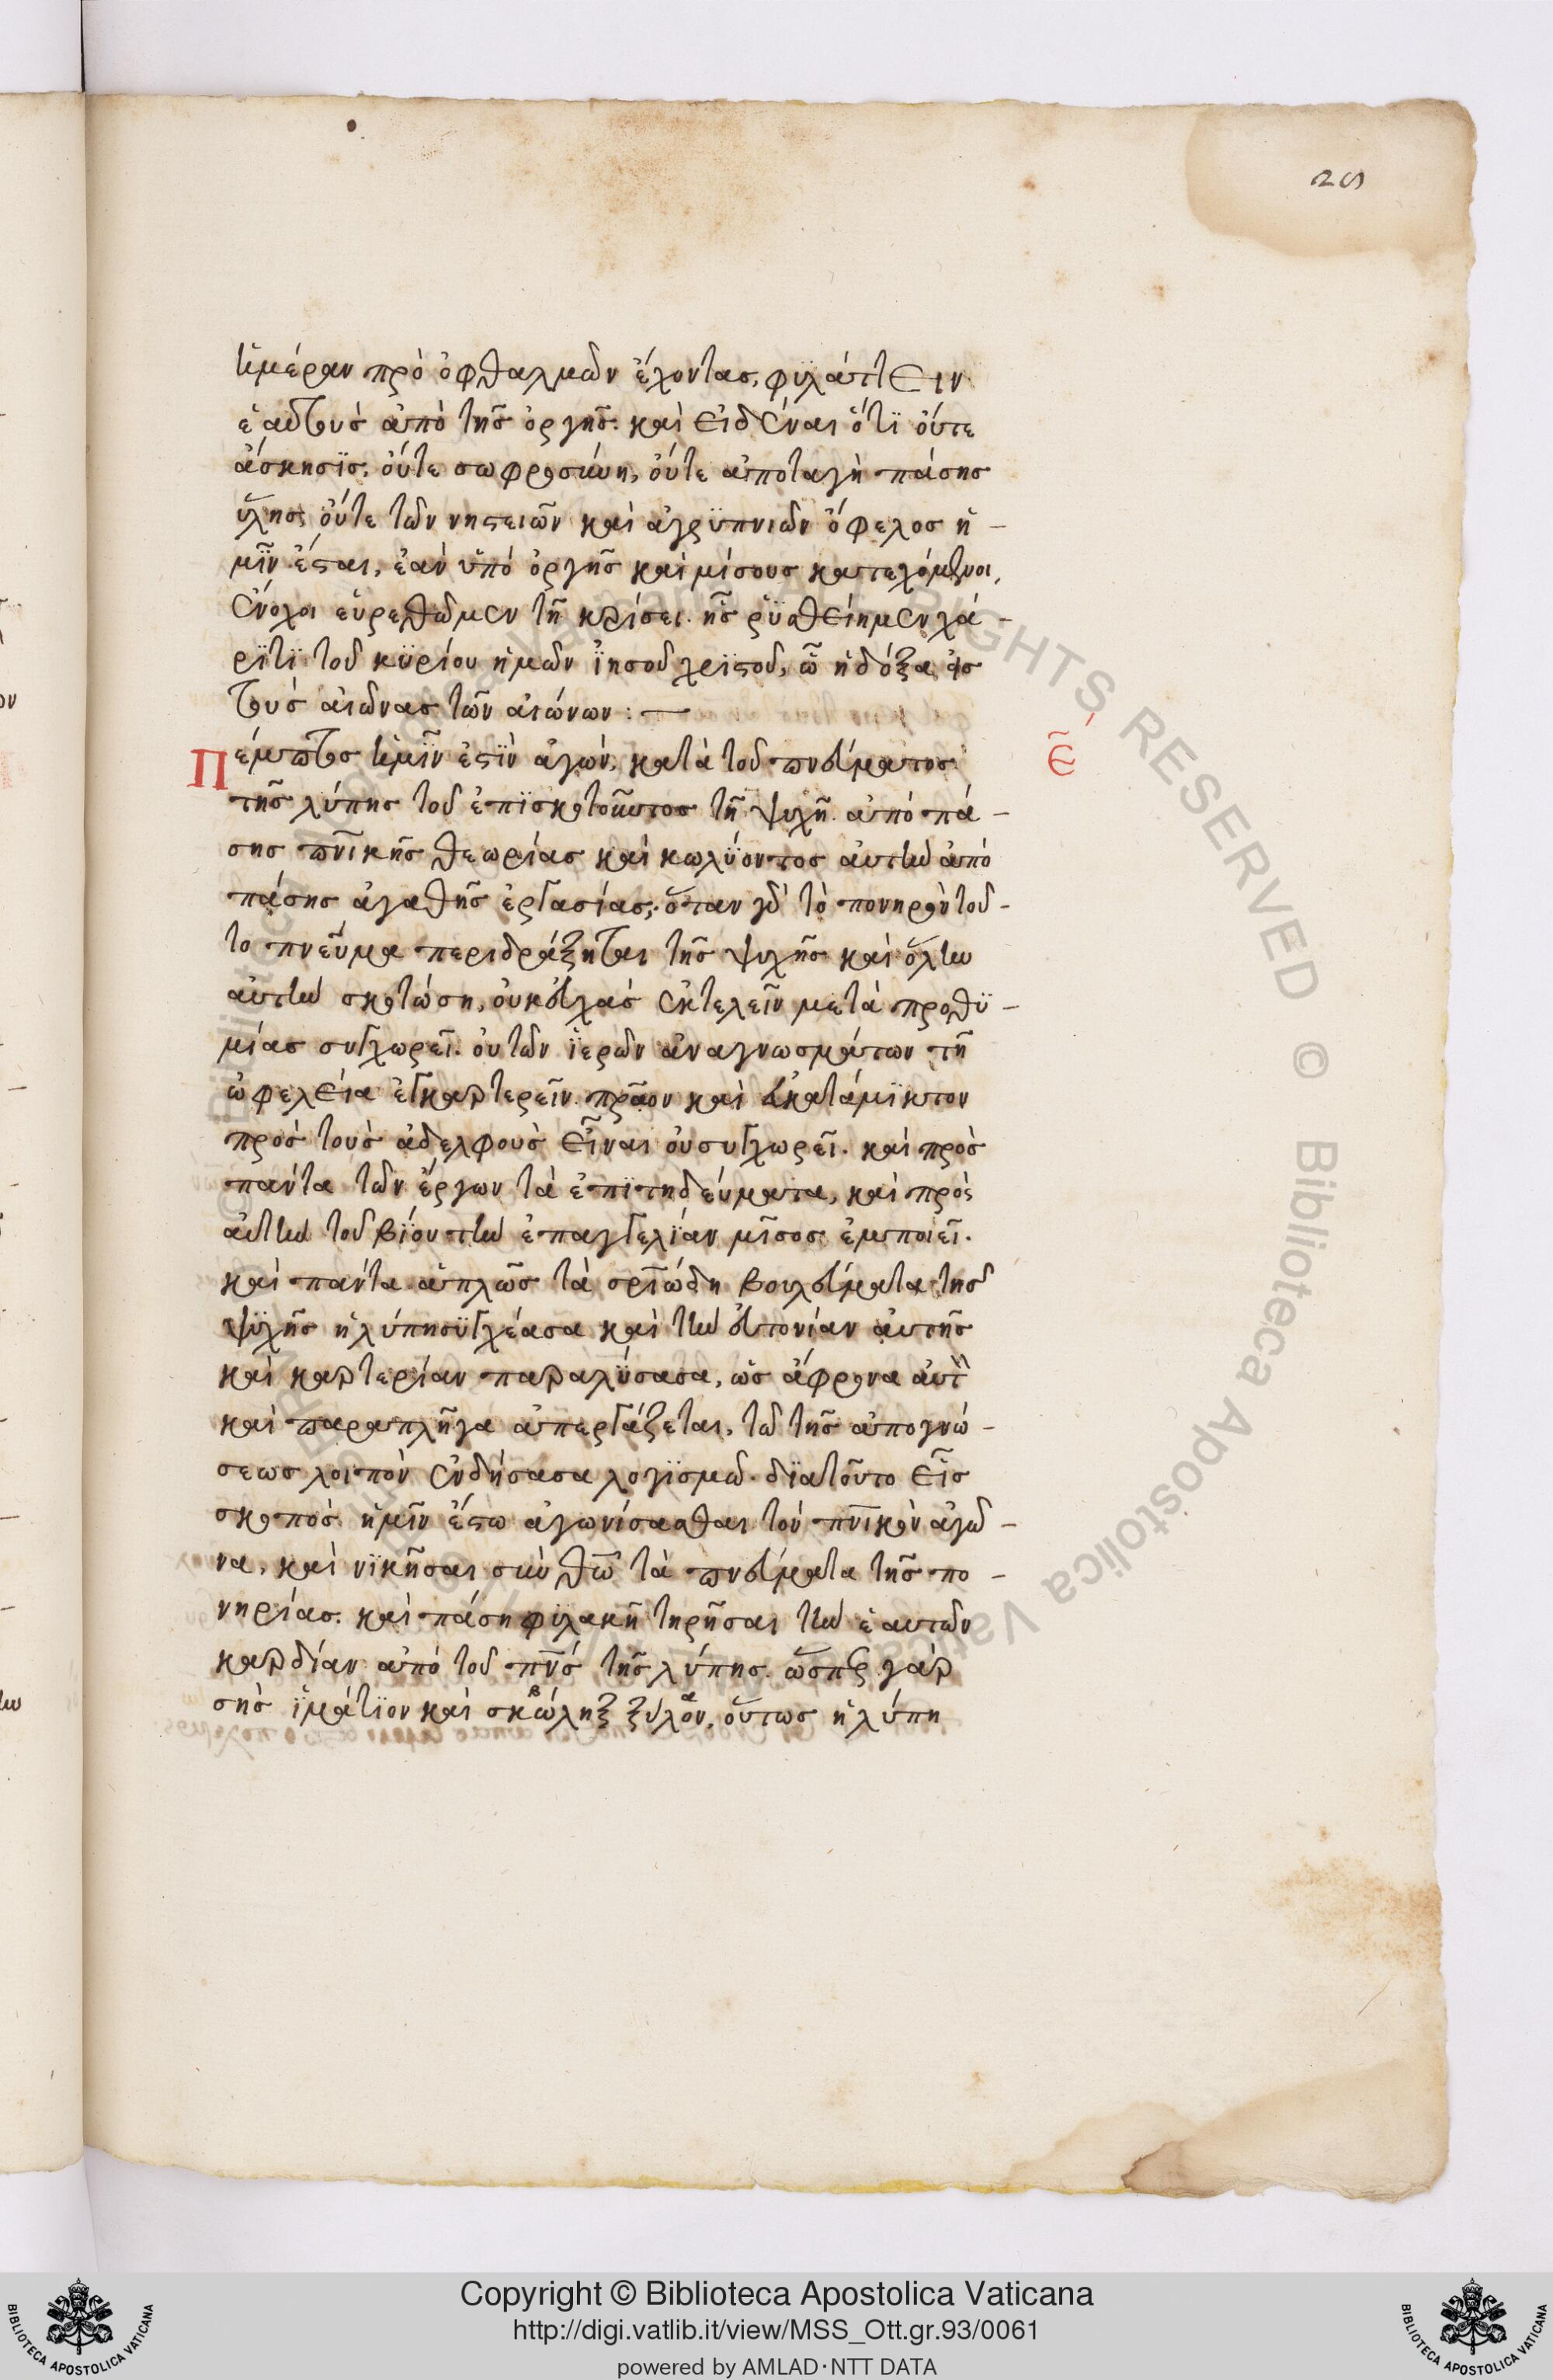 26
ἡμέραν πρὸ ὀφθαλμῶν ἔχοντας, φϋλάττειν
ἑαυτοὺς ἀπὸ τῆς ὀργῆς. καὶ εἰδέναι ὅτϊ οὔτε
ἄσκησϊς, οὔτε σωφροσύνη, οὔτε ἀποταγὴ πάσης
ὕλης, οὔτε τῶν νηστειῶν καὶ ἀγρϋπνιῶν ὄφελος ἡ-
μῖν ἔσται, ἐὰν ὑπὸ ὀργῆς καὶ μίσους κατεχόμενοι,
ἔνοχοι εὑρεθῶμεν τῇ κρίσει. ἧς ῥϋσθείημεν χά-
ρϊτϊ τοῦ κϋρίου ἡμῶν ϊησοῦ χρϊστοῦ, ᾧ ἡ δόξα εἰς
τοὺς αἰῶνας τῶν αἰώνων :—
Πέμπτος ἡμῖν ἐστϊν ἀγών, κατὰ τοῦ πνεύματος
ε̄
τῆς λύπης τοῦ ἐπϊσκοτοῦντος τῇ ψυχῇ ἀπὸ πά-
σης πνικῆς θεωρίας καὶ κωλϋοντος αὐτὴν ἀπὸ
πάσης ἀγαθῆς ἐργασίας. ὅταν γὰρ τὸ πονηρὸν τοῦ-
το πνεῦμα περιδράξηται τῆς ψυχῆς καὶ ὅλην
αὐτὴν σκοτώση, οὐκ εὐχὰς ἐκτελεῖν μετὰ προθϋ-
μίας συγχωρεῖ. οὐ τῶν ϊερῶν ἀναγνωσμάτων τῇ
ὠφελεία ἐγκαρτερεῖν. πρᾶον καὶ εὐκατάμϊκτον
πρὸς τοὺς ἀδελφοὺς εἶναι οὐ συγχωρεῖ. καὶ πρὸς
πάντα τῶν ἔργων τὰ ἐπϊτηδεύματα, καὶ πρὸς
αὐτὴν τοῦ βϊου τὴν ἐπαγγελϊαν μῖσος ἐμποιεῖ.
καὶ πάντα ἁπλῶς τὰ σρϊώδη βουλεύματα τῆς
ψϋχῆς ἡ λύπη συγχέασα καὶ τὴν εὐτονίαν αὐτῆς
καὶ καρτερίαν παραλϋσασα, ὡς ἄφρονα αὐτ
καὶ παραπλῆγα ἀπεργάζεται, τῷ τῆς ἀπογνώ-
σεως λοιπὸν ἐνδήσασα λογϊσμῷ. δϊα τοῦτο εἷς
σκοπὸς ἡμῖν ἔστω ἀγωνίσασθαι τὸν πνικὸν ἀγῶ-
να, καὶ νϊκῆσαι σὺν θῶ τὰ πνεύματα τῆς πο-
νηρίας. καὶ πάση φϋλακῇ τηρῆσαι τὴν ἑαυτῶν
καρδίαν ἀπὸ τοῦ πνς τῆς λύπης. ὥσπερ γὰρ
σὴς ϊμάτϊον καὶ σκώληξ ξύλον, οὕτως ἡ λύπη
Copyright © Biblioteca Apostolica Vaticana
http://digi.vatlib.it/view/MSS_Ott.gr.93/0061
powered by AMLAD·NTT DATA